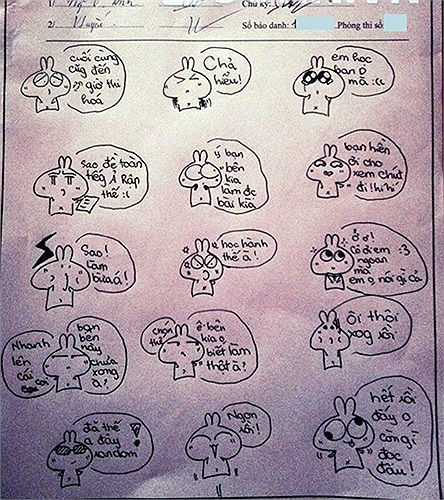 Chữ ký:
2/
Số báo danh: 1
Phòng thi số:
cuối cùng
cũg đến
giờ thi
hoá
Chả
hiểu!
em học
ban D
mà :((
Sao đề toàn
tiếg Ả Rập
thế :(
ý bạn
bên
kia
làm đc
bài kìa
bạn hiền
ơi cho
xem chút
đi! hí hí
Sao!
làm
bừa á!
học hành
thế à!
ơ ơ!
Cô ơi em :3
ngoan
mà
em o nói gì cả
Nhanh
lên
cái
coi
bạn
bên
này
chưa
xong
à?
chọn
thử
ê bên
kia o
biết làm
thật à?
ôi thôi
xog rồi
đã thế
a đây
random
!
Ngon
rồi!
hết rồi
đấy o
còn gì
đọc
đâu!